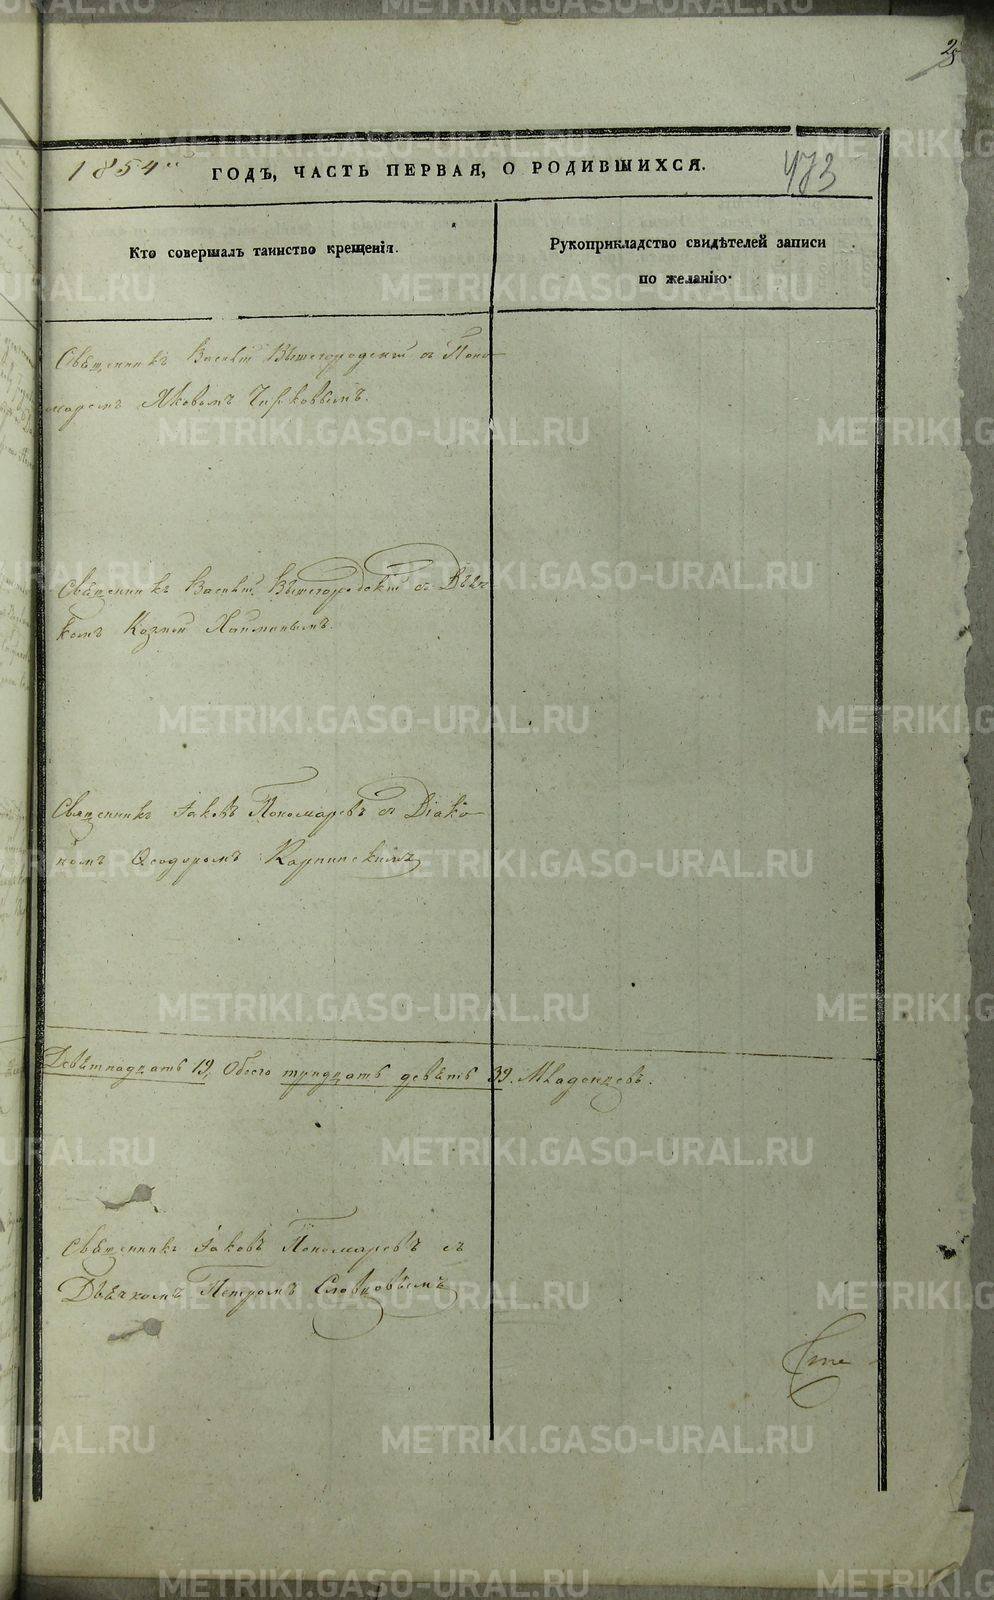 1854
ГОДЪ, ЧАСТЬ ПЕРВАЯ, О РОДИВШИХСЯ.
473
Кто совершалъ таинство крещенія.
Рукоприкладство свидѣтелей записи
по желанію
Священникъ Василій Вышегородскій съ Поно
маремъ Яковомъ Чирковымъ.
Священникъ Василій Вышегородскій съ Дьяч
комъ Козмой
Священникъ Іаковъ Пономаревъ съ Діако
номъ Ѳеодоромъ Карпинскимъ
Девѣтнадцать 19. Обоего тридцать девѣть 39. Младенцевъ.
Священникъ Іаковъ Пономаревъ съ
Дьячкомъ Петромъ Словцовымъ
METRIKI.GASO-URAL.RU